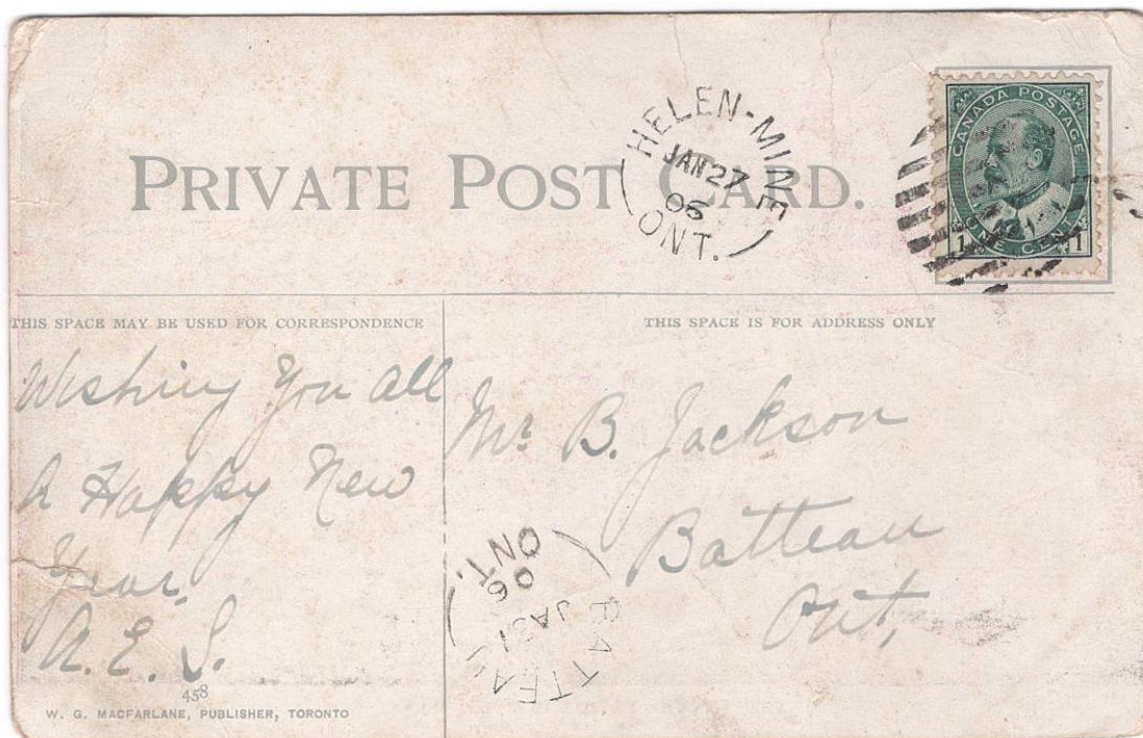 PRIVATE POST CARD.
HELEN-MINE
JAN 27
06
ONT.
CANADA POSTAGE
1 ONE CENT 1
THIS SPACE MAY BE USED FOR CORRESPONDENCE
Wishing You all
A Happy New
Year.
A. E. S.
458
W. G. MACFARLANE, PUBLISHER, TORONTO
THIS SPACE IS FOR ADDRESS ONLY
Mr. B. Jackson
Batteau
Ont,
BATTEAU
JA 31
06
ONT.